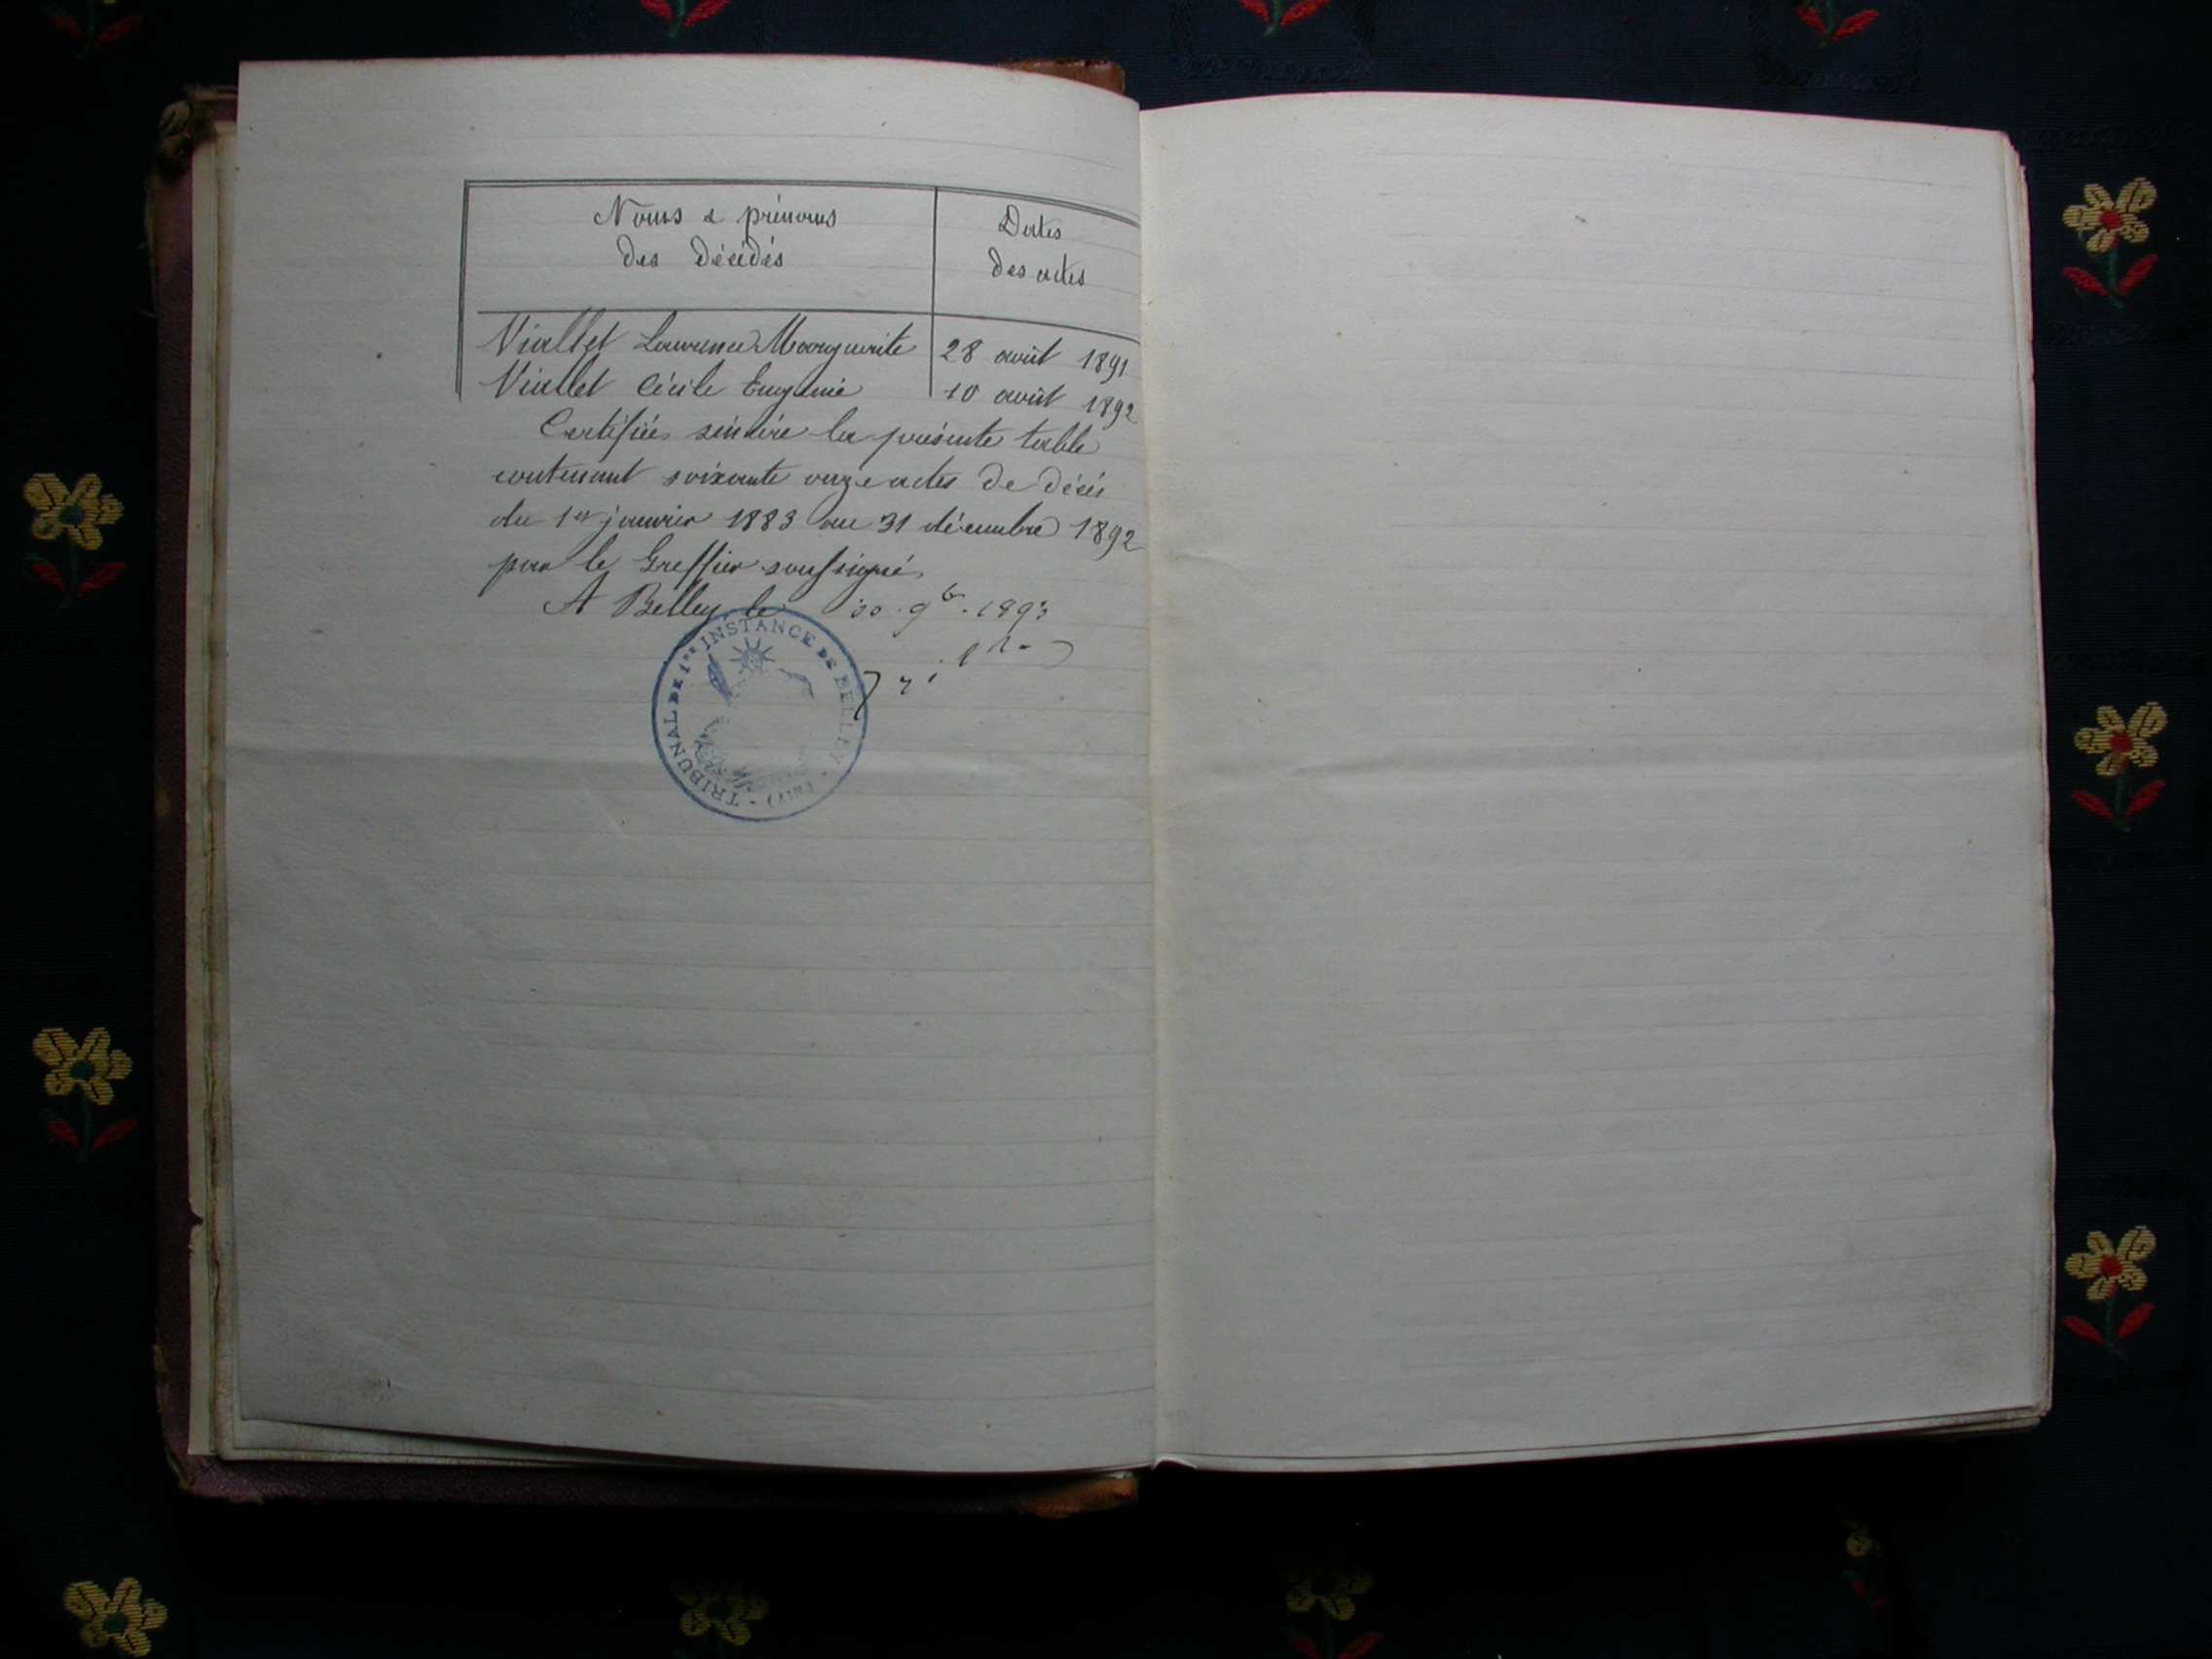 Noms & prénoms
des décédés
Dates
des actes
Viallet Laurence Marguerite 28 août 1891
Viallet Cécile Eugénie 10 août 1892
Certifiée sincère la présente table
contenant soixante onze actes de décès
du 1er janvier 1883 au 31 décembre 1892
par le Greffier soussigné
A Belley le 30 . 9br . 1893
TRIBUNAL DE 1re INSTANCE DE BELLEY - (AIN) -